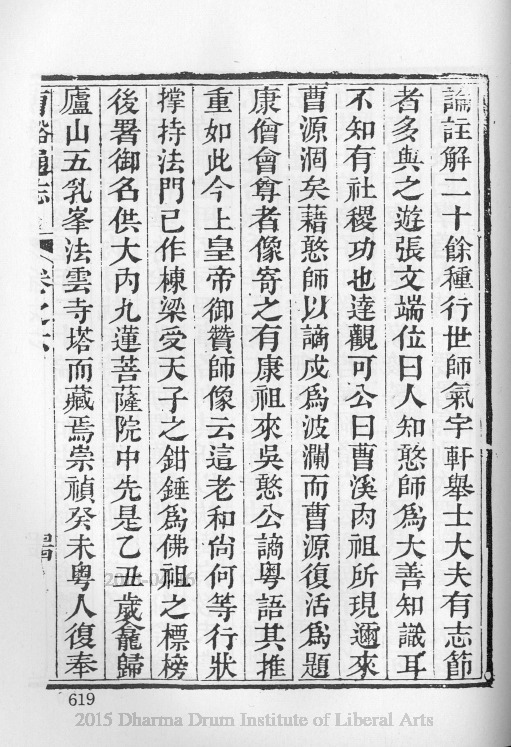 論註解二十餘種行世師氣宇軒舉士大夫有志節
者多與之遊張文端位曰人知憨師爲大善知識耳
不知有社稷功也達觀可公曰曹溪肉祖所現邇來
曹源涸矣藉憨師以謫戍爲波瀾而曹源復活爲題
康僧會尊者像寄之有康祖來吳憨公謫粵語其推
重如此今上皇帝御贊師像云這老和尚何等行狀
撑持法門已作棟梁受天子之鉗錘爲佛祖之標榜
後署御名供大內九蓮菩薩院中先是乙丑歲龕歸
廬山五乳峯法雲寺塔而藏焉崇禎癸未粵人復奉
曹谿通志 卷之六
619
2015 Dharma Drum Institute of Liberal Arts